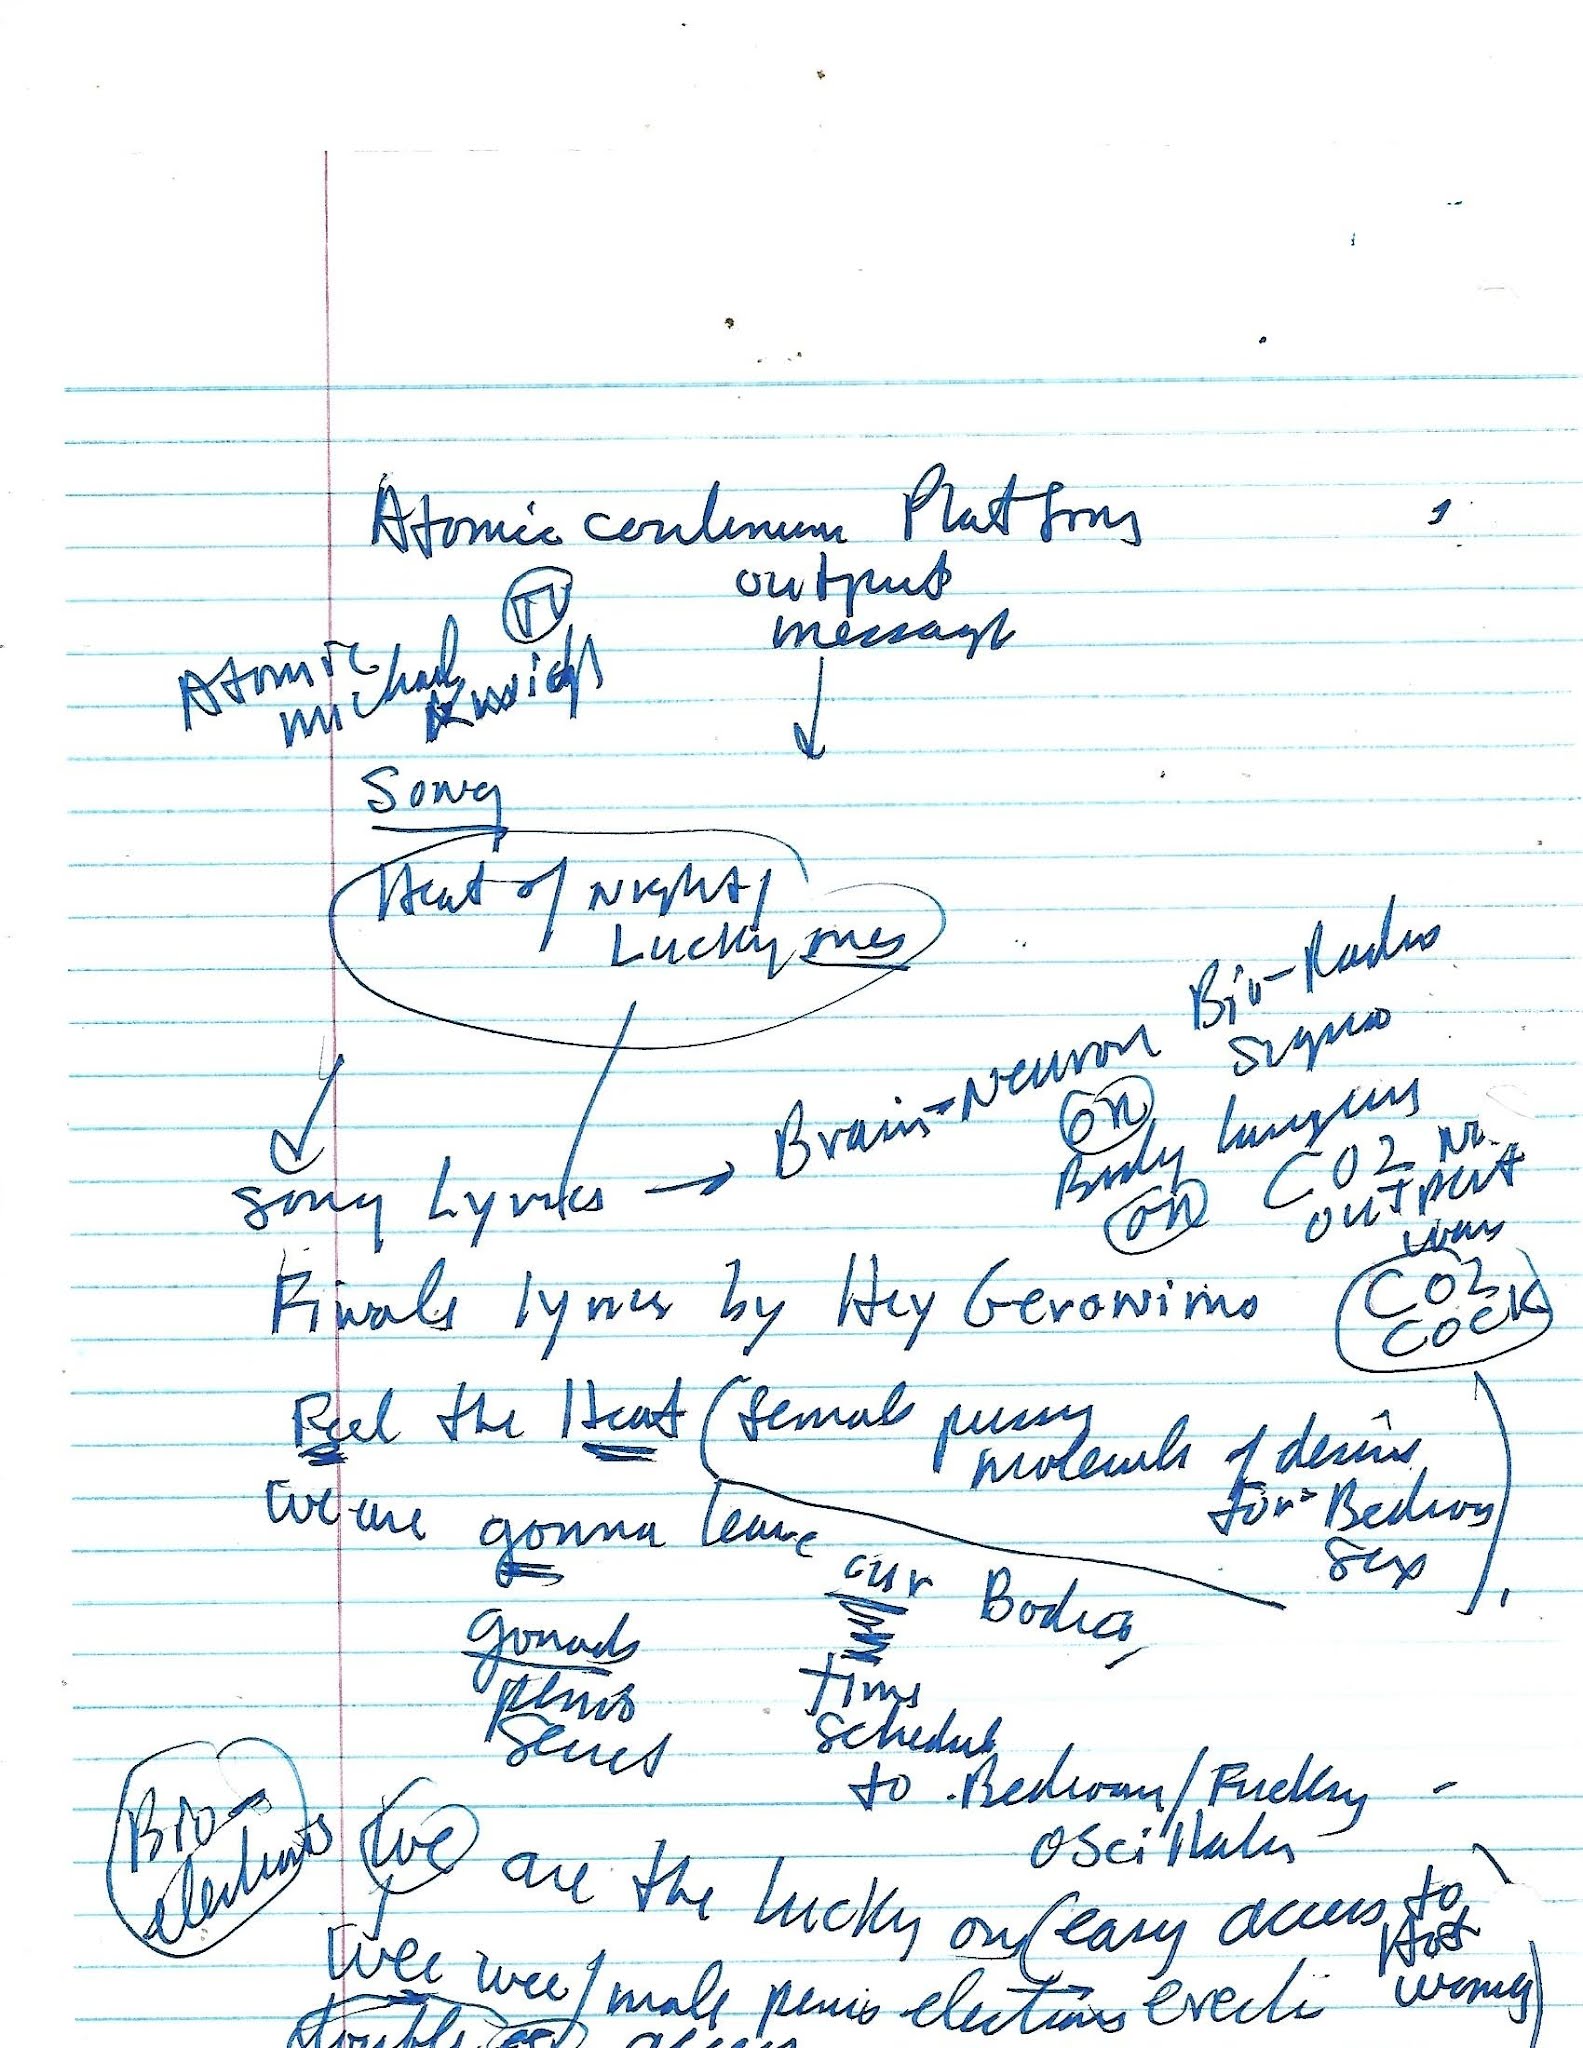 Atomic continuum Platform
output
message
TV
Atomic
Michael
Song
Heat of Night/
Lucky ones
Song Lyrics → Brain-Neuron Bio-Radio
Signa
on
Body language
on
CO2
output
CO2
COCK
lyrics by Hey Geronimo
Feel the Heat (female pussy
molecule of desire
for Bedroom
Sex
We are gonna leave
our Bodies
gonads
penis
time
schedule
to Bedroom/Fucking
oscillates
Bio-
electrons
We are the Lucky one (easy access to
Hot
women)
Wee wee/male penis electrons erect